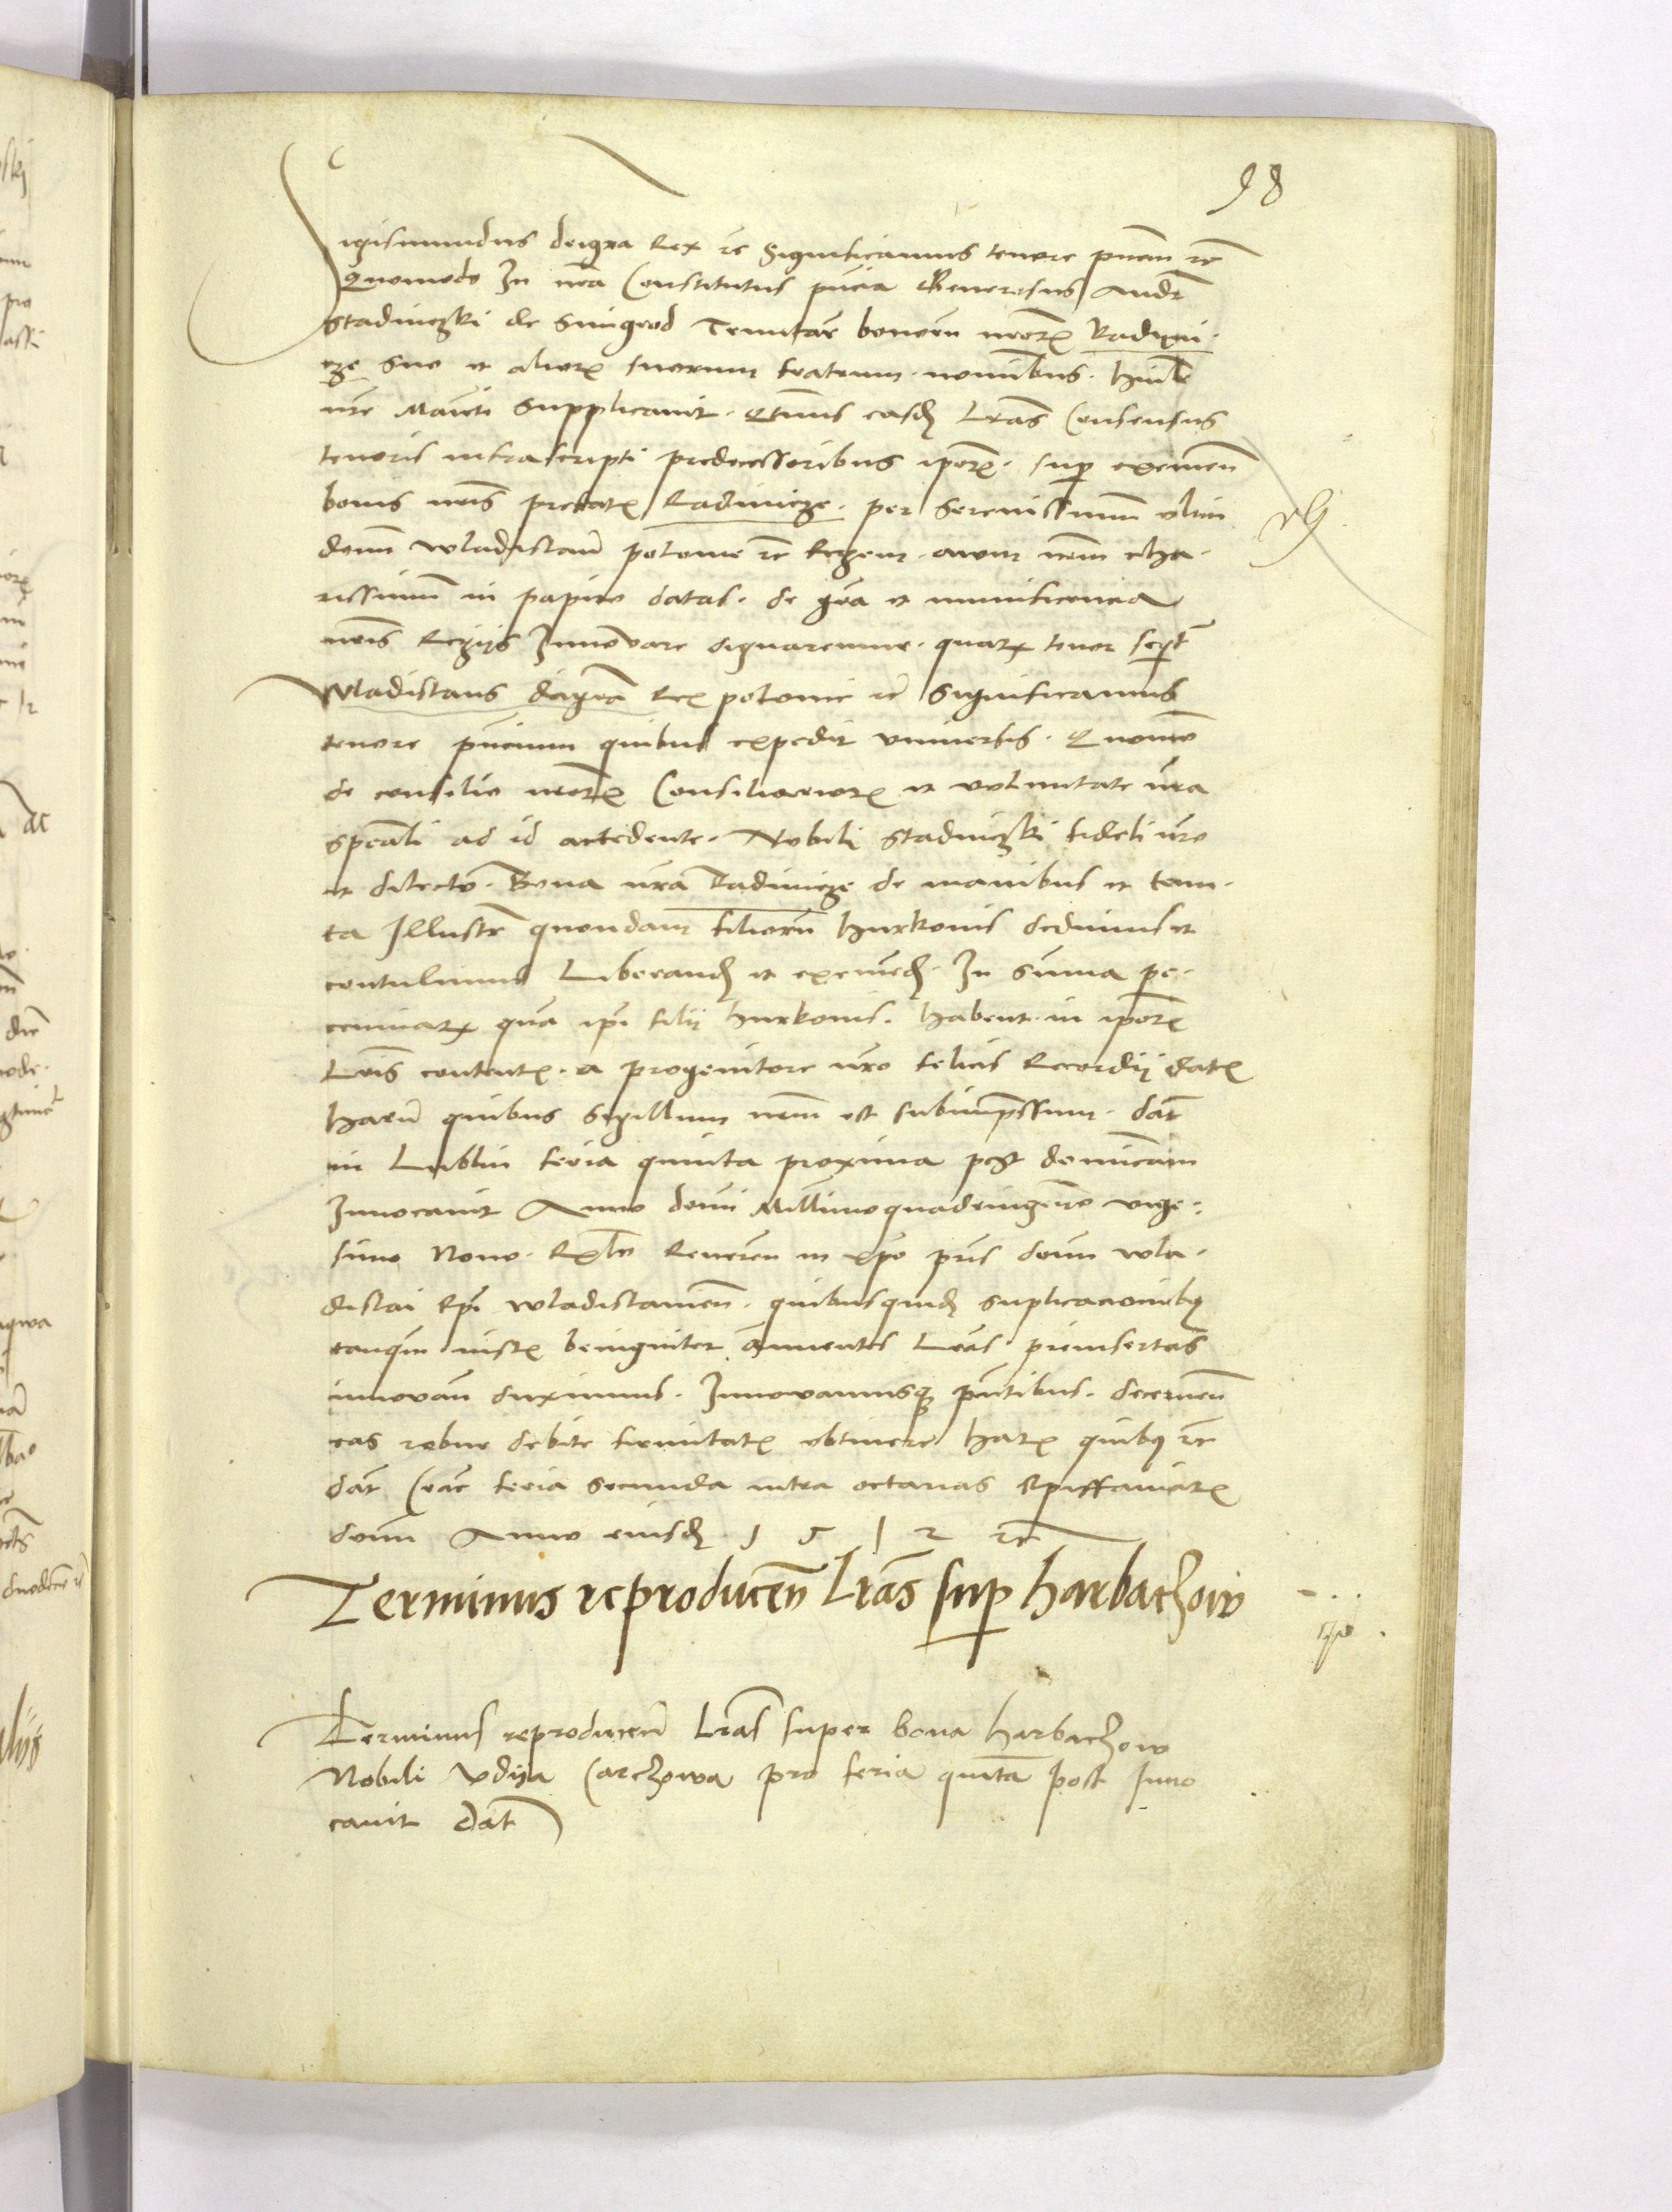 98
Sigismundus dei gra Rex etc Significamus tenore pntm etc
Quomodo In nra Constitutus pncia Generosus Andr
Stadniczki de Smigrod Tenutar bonorum nrorum Radnni-
cze suo et aliorum suorum fratrum nominibus. humilr
nre Maiesti supplicavit. Qtenus easdem Lras Consensus
tenoris infrascripti predecessoribus ipsorum. super eximen
bonis nris prefatis Radnicze. per Serenissimum olim
dominum Wladislaum polonie etc Regem. avum nrm cha-
rissimum in papiro datas. de gra et munificencia
nris Regijs Innovare dignaremur. quarum tenor seqt
Wladislaus dei gra Rex polonie etc Significamus
tenore pncium quibus expedit universis. Quomo
de consilio nrorum Consiliariorum et voluntate nra
speciali ad id accedente. Nobili Stadniczki fideli nro
et dilecto. Bona nra Radnicze de manibus et tenu-
ta Illustr quondam filiorum hurkonis dedimus et
contulimus Liberand et eximend. In summa pe-
cuniarum quam ipsi filij hurkonis. habent in ipsorum
Lris contentis. a progenitore nro felicis Recordij datis
harum quibus sigillum nrm est subimpressum. dat
in Lublin feria quinta proxima post dominicam
Invocavit Anno domi Millimo quadringento vige-
simo Nono. Relo Reveren in xpo pris domini Wla-
dislai Epi Wladislavien. quibusquidem suplicacionibus
tanquam iustis benigniter annuentes Lras. preinsertas
innovan duximus. Innovamusque pntibus. decernen
eas robur debite firmitatis obtinere harum quibus etc
dat Crac feria secunda intra octavas Epiffaniarum
domini Anno eiusdem 1512 etc
Terminus reproducen Lras sup harbaczow
Terminus reproducen Lras super bona harbaczow
Nobili Carczowa pro feria quinta post Invo
cavit dat